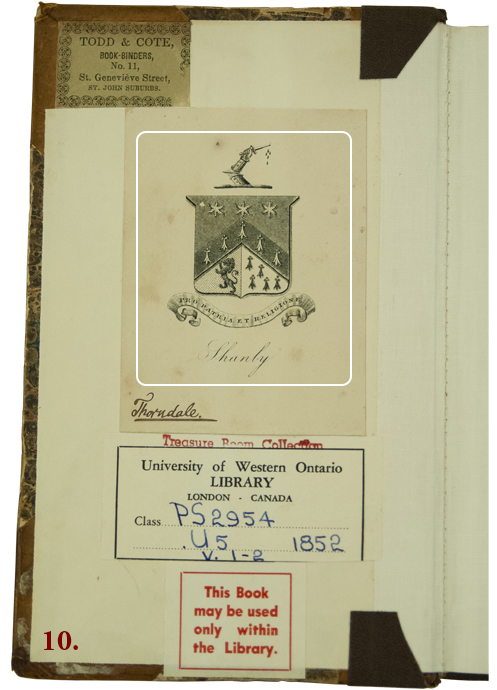 TODD & COTE,
BOOK-BINDERS,
No. 11,
St. Geneviève Street,
ST. JOHN SUBURBS.
PRO PATRIA ET RELIGIONE
Shanly
Thorndale.
Treasure Room Collection
University of Western Ontario
LIBRARY
LONDON - CANADA
Class PS2954
.U5 1852
v. 1-2
This Book
may be used
only within
the Library.
10.